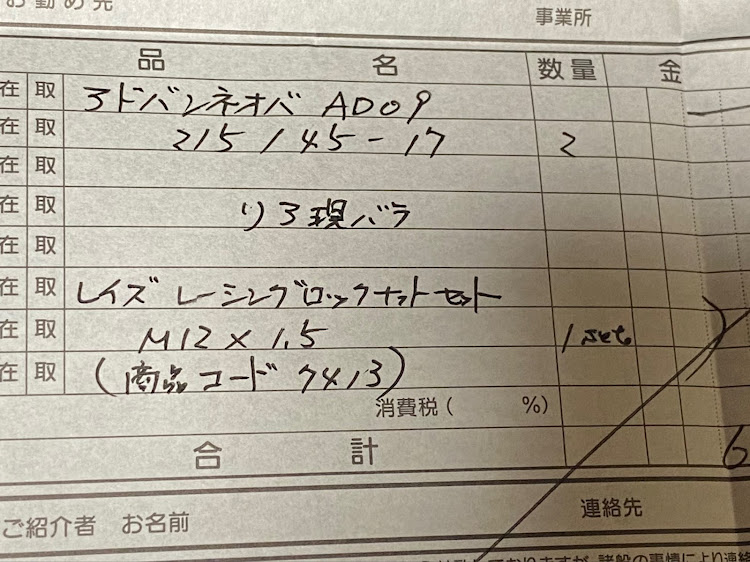 お勤め先 事業所
品 名 数量 金
在 取 アドバンネオバ AD09
在 取 215 / 45 - 17 2
在 取
在 取 リア現バラ
在 取
在 取 レイズ レーシングロックナットセット
在 取 M12 × 1.5 1 set
在 取 (商品コード 7413)
消費税( %)
合 計 6
ご紹介者 お名前 連絡先
おりますが、諸般の事情により連絡